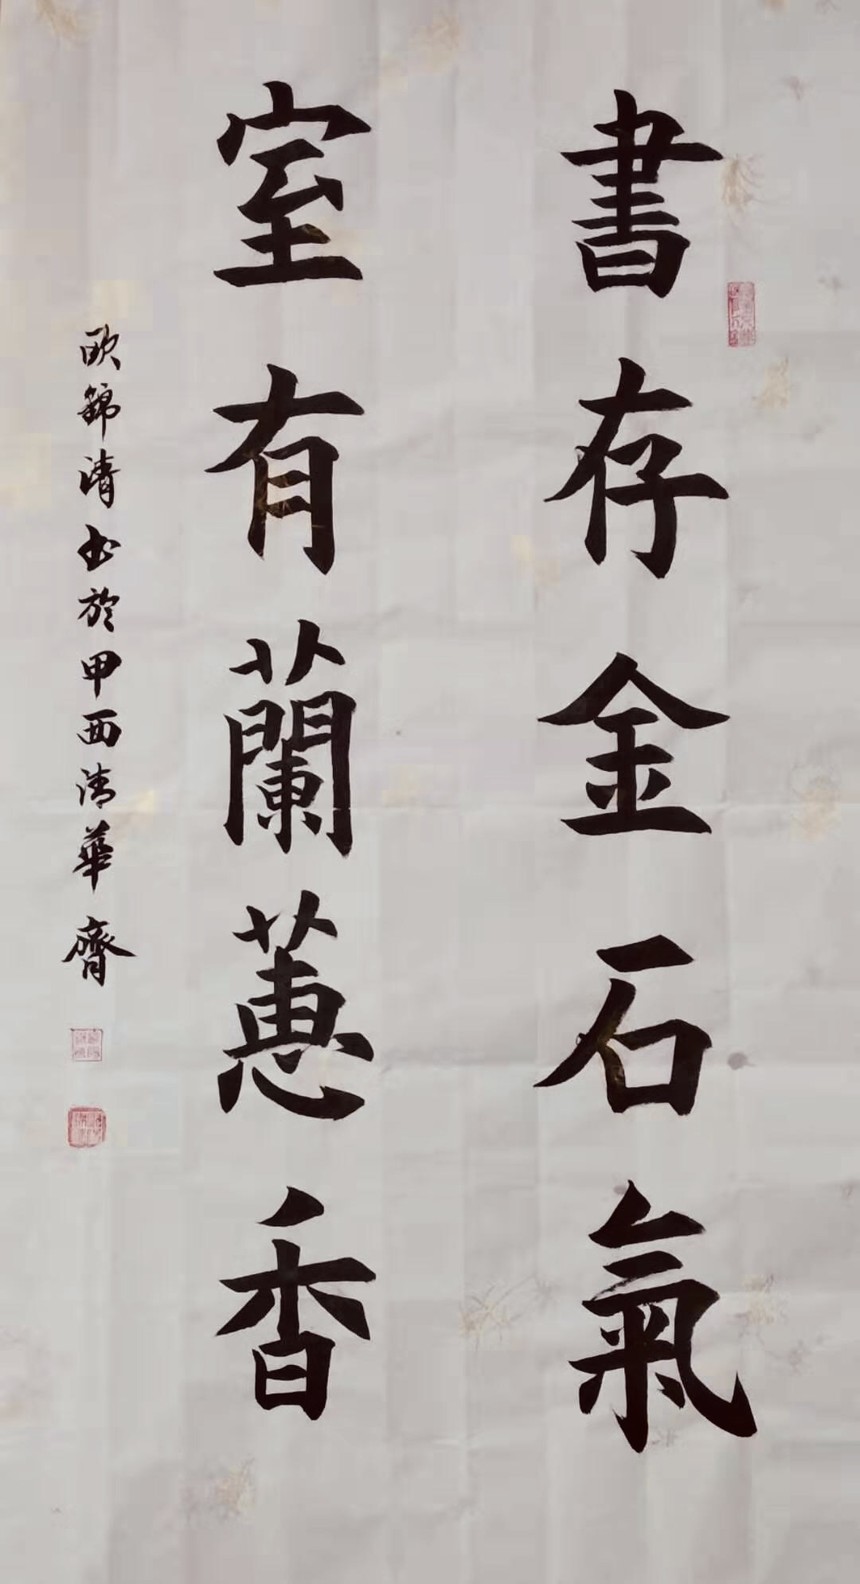 書存金石氣
室有蘭蕙香
欧錦清书於甲西清華齊